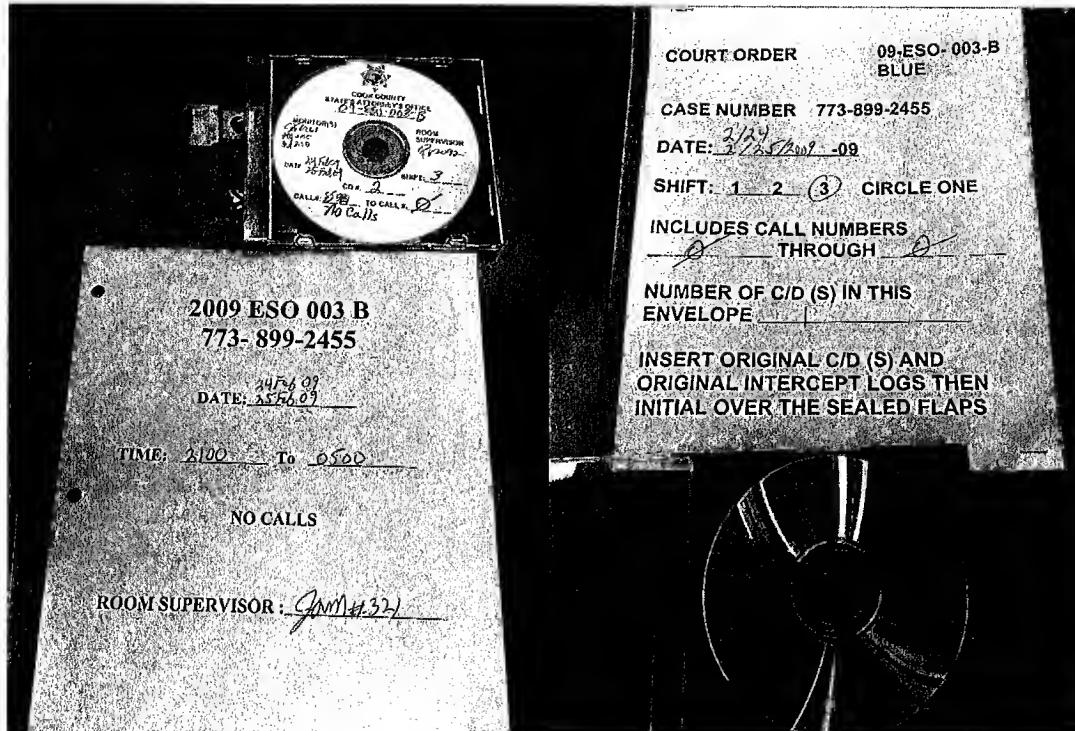 COOK COUNTY
STATE'S ATTORNEY'S OFFICE
09-ESO-003-B
MONITOR(S)
ROOM
SUPERVISOR
DATE 24 Feb 09
25 Feb 09
SHIFT: 3
CD #. 2
CALL#: TO CALL #. Ø
No Calls
2009 ESO 003 B
773- 899-2455
24 Feb 09
DATE: 25 Feb 09
TIME: 2100 To 0500
NO CALLS
ROOM SUPERVISOR :
COURT ORDER 09-ESO- 003-B
BLUE
CASE NUMBER 773-899-2455
2/24
DATE: 2/25/2009 -09
SHIFT: 1 2 3 CIRCLE ONE
INCLUDES CALL NUMBERS
Ø THROUGH Ø
NUMBER OF C/D (S) IN THIS
ENVELOPE 1
INSERT ORIGINAL C/D (S) AND
ORIGINAL INTERCEPT LOGS THEN
INITIAL OVER THE SEALED FLAPS